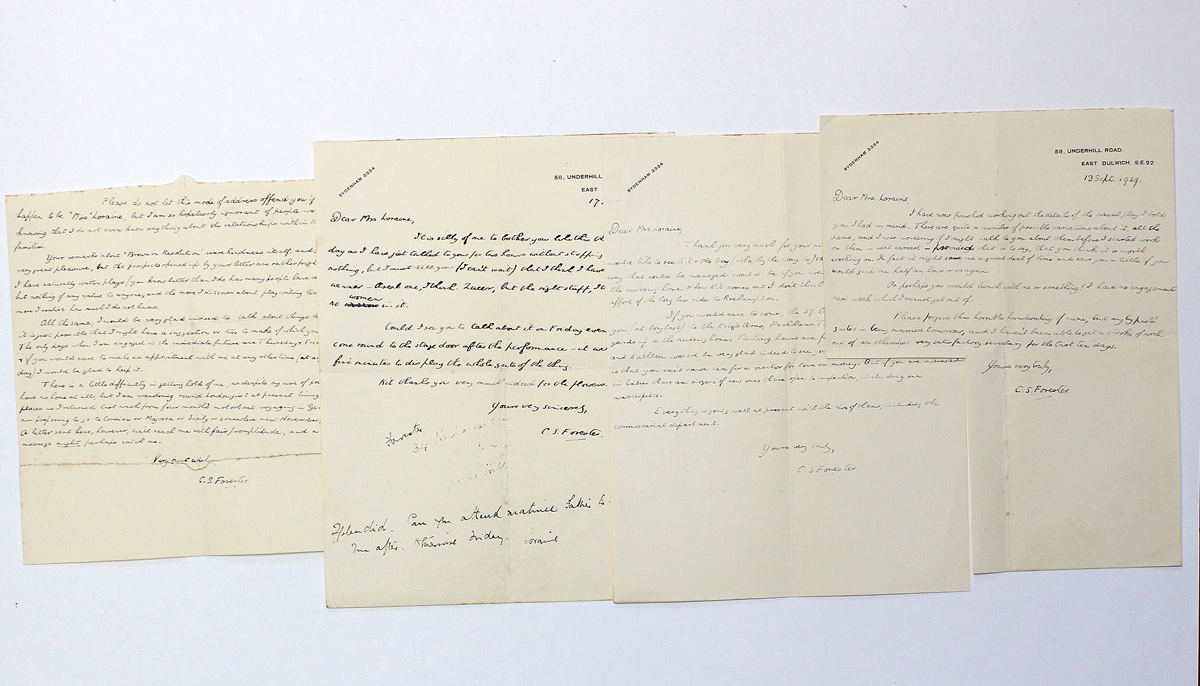 Please do not let this mode of address offend you if
happen to be "Mrs" Loraine, but I am so hopelessly ignorant of people
knowing that I do not even know anything about the relationships within
families.
Your remarks about "Brown on Resolution" were kindness itself, and
very great pleasure, but the prospects opened up by your letter are rather
I have naturally written plays (you know better than I do how many people have
but nothing of any value to anyone, and the more I discover about play writing the
more I realise how much I do not know.
All the same, I would be very glad indeed to talk about things
it is just possible that I might have a suggestion or two to make of which you
The only days when I am engaged in the immediate future are Thursday &
& if you would care to make an appointment with me at any other time,
day) I would be glad to keep it.
There is a little difficulty in getting hold of me, as despite my use of
have no home at all, but I am wandering round London just at present living
places – I returned last week from four months motor boat voyaging in
am proposing to go to Corsica or Majorca or Sicily or somewhere next November.
A letter sent here, however, will reach me with fair promptitude, and a
message might, perhaps catch me.
Very sincerely,
C.S. Forester
SYDENHAM 2334
58, UNDERHILL
EAST
17.
Dear Mrs Loraine,
It is silly of me to bother you with this
day as I have just talked to you for two hours without stopping
nothing, but I must tell you (I can't wait) that I think I have
winner – great one, I think. Lutter, but the right stuff,
no women in it.
Could I see you to talk about it on Friday even
come round to the stage door after the performance – it
five minutes to display the whole guts of the thing.
Kit thanks you very much indeed for the flowers.
Yours very sincerely,
C.S. Forester.
Forester
34
Splendid. Can you attend matinee
me after. Otherwise Friday. Loraine
SYDENHAM 2334
Dear Mrs Loraine,
Thank you very much for your
would like to see Kit & the boy (
way that could be managed would be if you
the nursing home. When Kit comes out I don't think
effort of the long bus ride to Roehampton.
If you would care to come, the 37
you (at long last) to the King's Arms, Peckham
yards up is the nursing home. Visiting hours are
and Kathleen would be very glad indeed to see you
so that you can't raise tea for a visitor for love or money. But if you are interested
in babies there are vistas of new ones laid open to inspection, including one
masterpiece.
Everything is going well at present with the two of them, including the
commissariat department.
Yours very truly,
C.S. Forester.
SYDENHAM 2334
58, UNDERHILL ROAD.
EAST DULWICH, S.E.22
13 Sept. 1929.
Dear Mrs. Loraine,
I have now finished working out the details of the naval play I told
you I had in mind. There are quite a number of possible variations about it, all the
same, and I was wondering if I might talk to you about them before I started work
on them in real earnest – provided, that is to say, that you think it is worth
working on. In fact it might save me a great deal of time and save you a little if you
would give me half an hour once again.
Or perhaps you would lunch with me or something? I have no engagement
next week which I cannot get out of.
Please forgive this horrible handwriting of mine, but my typist
sister is being married tomorrow, and I haven't been able to get a stroke of work
out of an otherwise very satisfactory secretary for the last ten days.
Yours very truly,
C.S. Forester.